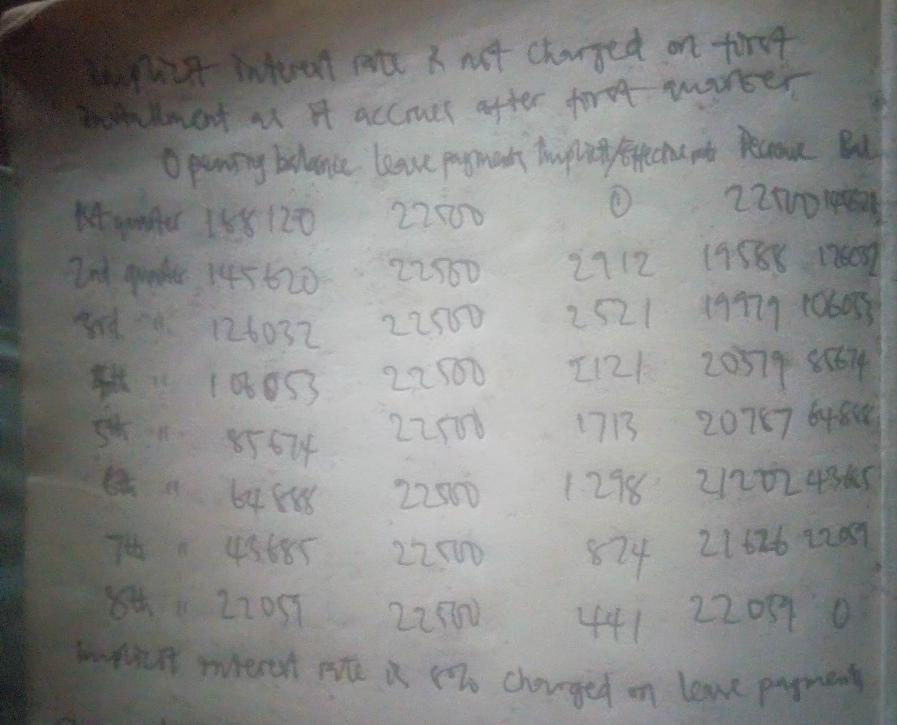 implicit interest rate is not charged on first
installment as it accrues after first quarter.
Opening balance lease payments Implicit/Effective Decrease Bal
1st quarter 168120 22500 0 22500
2nd quarter 145620 22500 2912 19588 126032
3rd " 126032 22500 2521 19979 106053
" 106053 22500 2121 20379 85674
5th " 85674 22500 1713 20787 64888
6th " 64888 22500 1298 21202 43685
7th " 43685 22500 874 21626 22059
8th " 22059 22500 441 22059 0
Implicit interest rate is 8% charged on lease payments